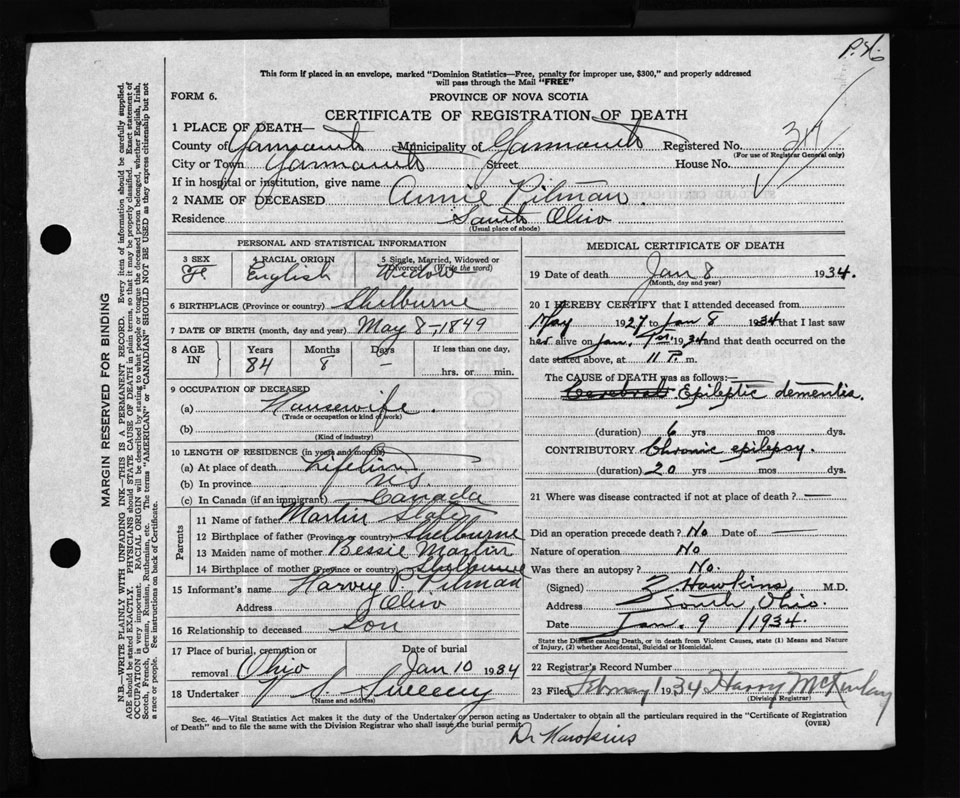 P.H.
This form if placed in an envelope, marked "Dominion Statistics—Free, penalty for improper use, $300," and properly addressed
will pass through the Mail "FREE"
FORM 6.
PROVINCE OF NOVA SCOTIA
CERTIFICATE OF REGISTRATION OF DEATH
1 PLACE OF DEATH—
County of Yarmouth Municipality of Yarmouth Registered No.
(For use of Registrar General only)
City or Town Yarmouth Street House No.
If in hospital or institution, give name
2 NAME OF DECEASED Annie Pitman.
Residence South Ohio
(Usual place of abode)
PERSONAL AND STATISTICAL INFORMATION
3 SEX 4 RACIAL ORIGIN 5 Single, Married, Widowed or Divorced (Write the word)
Fe English Widow
6 BIRTHPLACE (Province or country) Shelburne
7 DATE OF BIRTH (month, day and year) May 8-, 1849
8 AGE IN Years Months Days If less than one day,
84 8 — hrs. or min.
9 OCCUPATION OF DECEASED
(a) Housewife.
(Trade or occupation or kind of work)
(b)
(Kind of industry)
10 LENGTH OF RESIDENCE (in years and months)
(a) At place of death Lifetime
(b) In province N.S.
(c) In Canada (if an immigrant) Canada
Parents
11 Name of father Martin
12 Birthplace of father (Province or country) Shelburne
13 Maiden name of mother Bessie Martin
14 Birthplace of mother (Province or country) Shelburne
15 Informant's name Harvey P. Pitman
Address Ohio
16 Relationship to deceased Son
17 Place of burial, cremation or removal Ohio Date of burial Jan 10 1934
18 Undertaker S. Sweeny
(Name and address)
MEDICAL CERTIFICATE OF DEATH
19 Date of death Jan 8 1934.
(Month, day and year)
20 I HEREBY CERTIFY that I attended deceased from
May 1927 to Jan 8 1934 that I last saw
her alive on Jan. 1934 and that death occurred on the
date stated above, at 11 P. m.
The CAUSE of DEATH was as follows:—
Cerebral Epileptic dementia.
(duration) 6 yrs mos dys.
CONTRIBUTORY Chronic epilepsy.
(duration) 20 yrs mos dys.
21 Where was disease contracted if not at place of death? —
Did an operation precede death? No Date of —
Nature of operation No
Was there an autopsy? No.
(Signed) Z Hawkins, M.D.
Address South, Ohio.
Date Jan. 9 / 1934.
State the Disease causing Death, or in death from Violent Causes, state (1) Means and Nature
of Injury, (2) whether Accidental, Suicidal or Homicidal.
22 Registrar's Record Number
23 Filed 1934 Harry McKinlay
(Division Registrar)
Sec. 46—Vital Statistics Act makes it the duty of the Undertaker or person acting as Undertaker to obtain all the particulars required in the "Certificate of Registration
of Death" and to file the same with the Division Registrar who shall issue the burial permit. (OVER)
Dr Hawkins
MARGIN RESERVED FOR BINDING
N.B.—WRITE PLAINLY WITH UNFADING INK—THIS IS A PERMANENT RECORD. Every item of information should be carefully supplied.
AGE should be stated EXACTLY. PHYSICIANS should STATE CAUSE OF DEATH in plain terms, so that it may be properly classified. Exact statement of
OCCUPATION is very important. RACIAL ORIGIN will be described by stating to what people or tongue the deceased person belonged, whether English, Irish,
Scotch, French, German, Russian, Ruthenian, etc. The terms "AMERICAN" or "CANADIAN" SHOULD NOT BE USED as they express citizenship but not
a race or people. See instructions on back of Certificate.